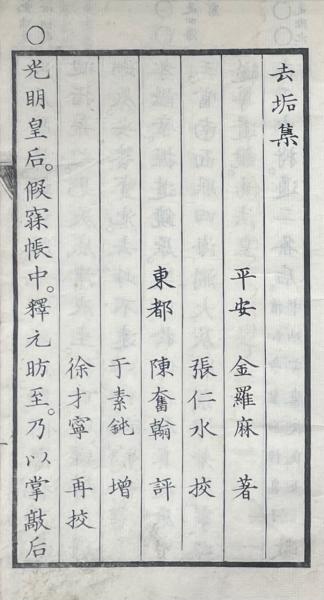 去垢集
平安 金羅麻 著
張仁水 挍
東都 陳奮翰 評
于素鈍 增
徐才寧 再挍
○光明皇后。假寐帳中。釋元昉至。乃以掌敲后